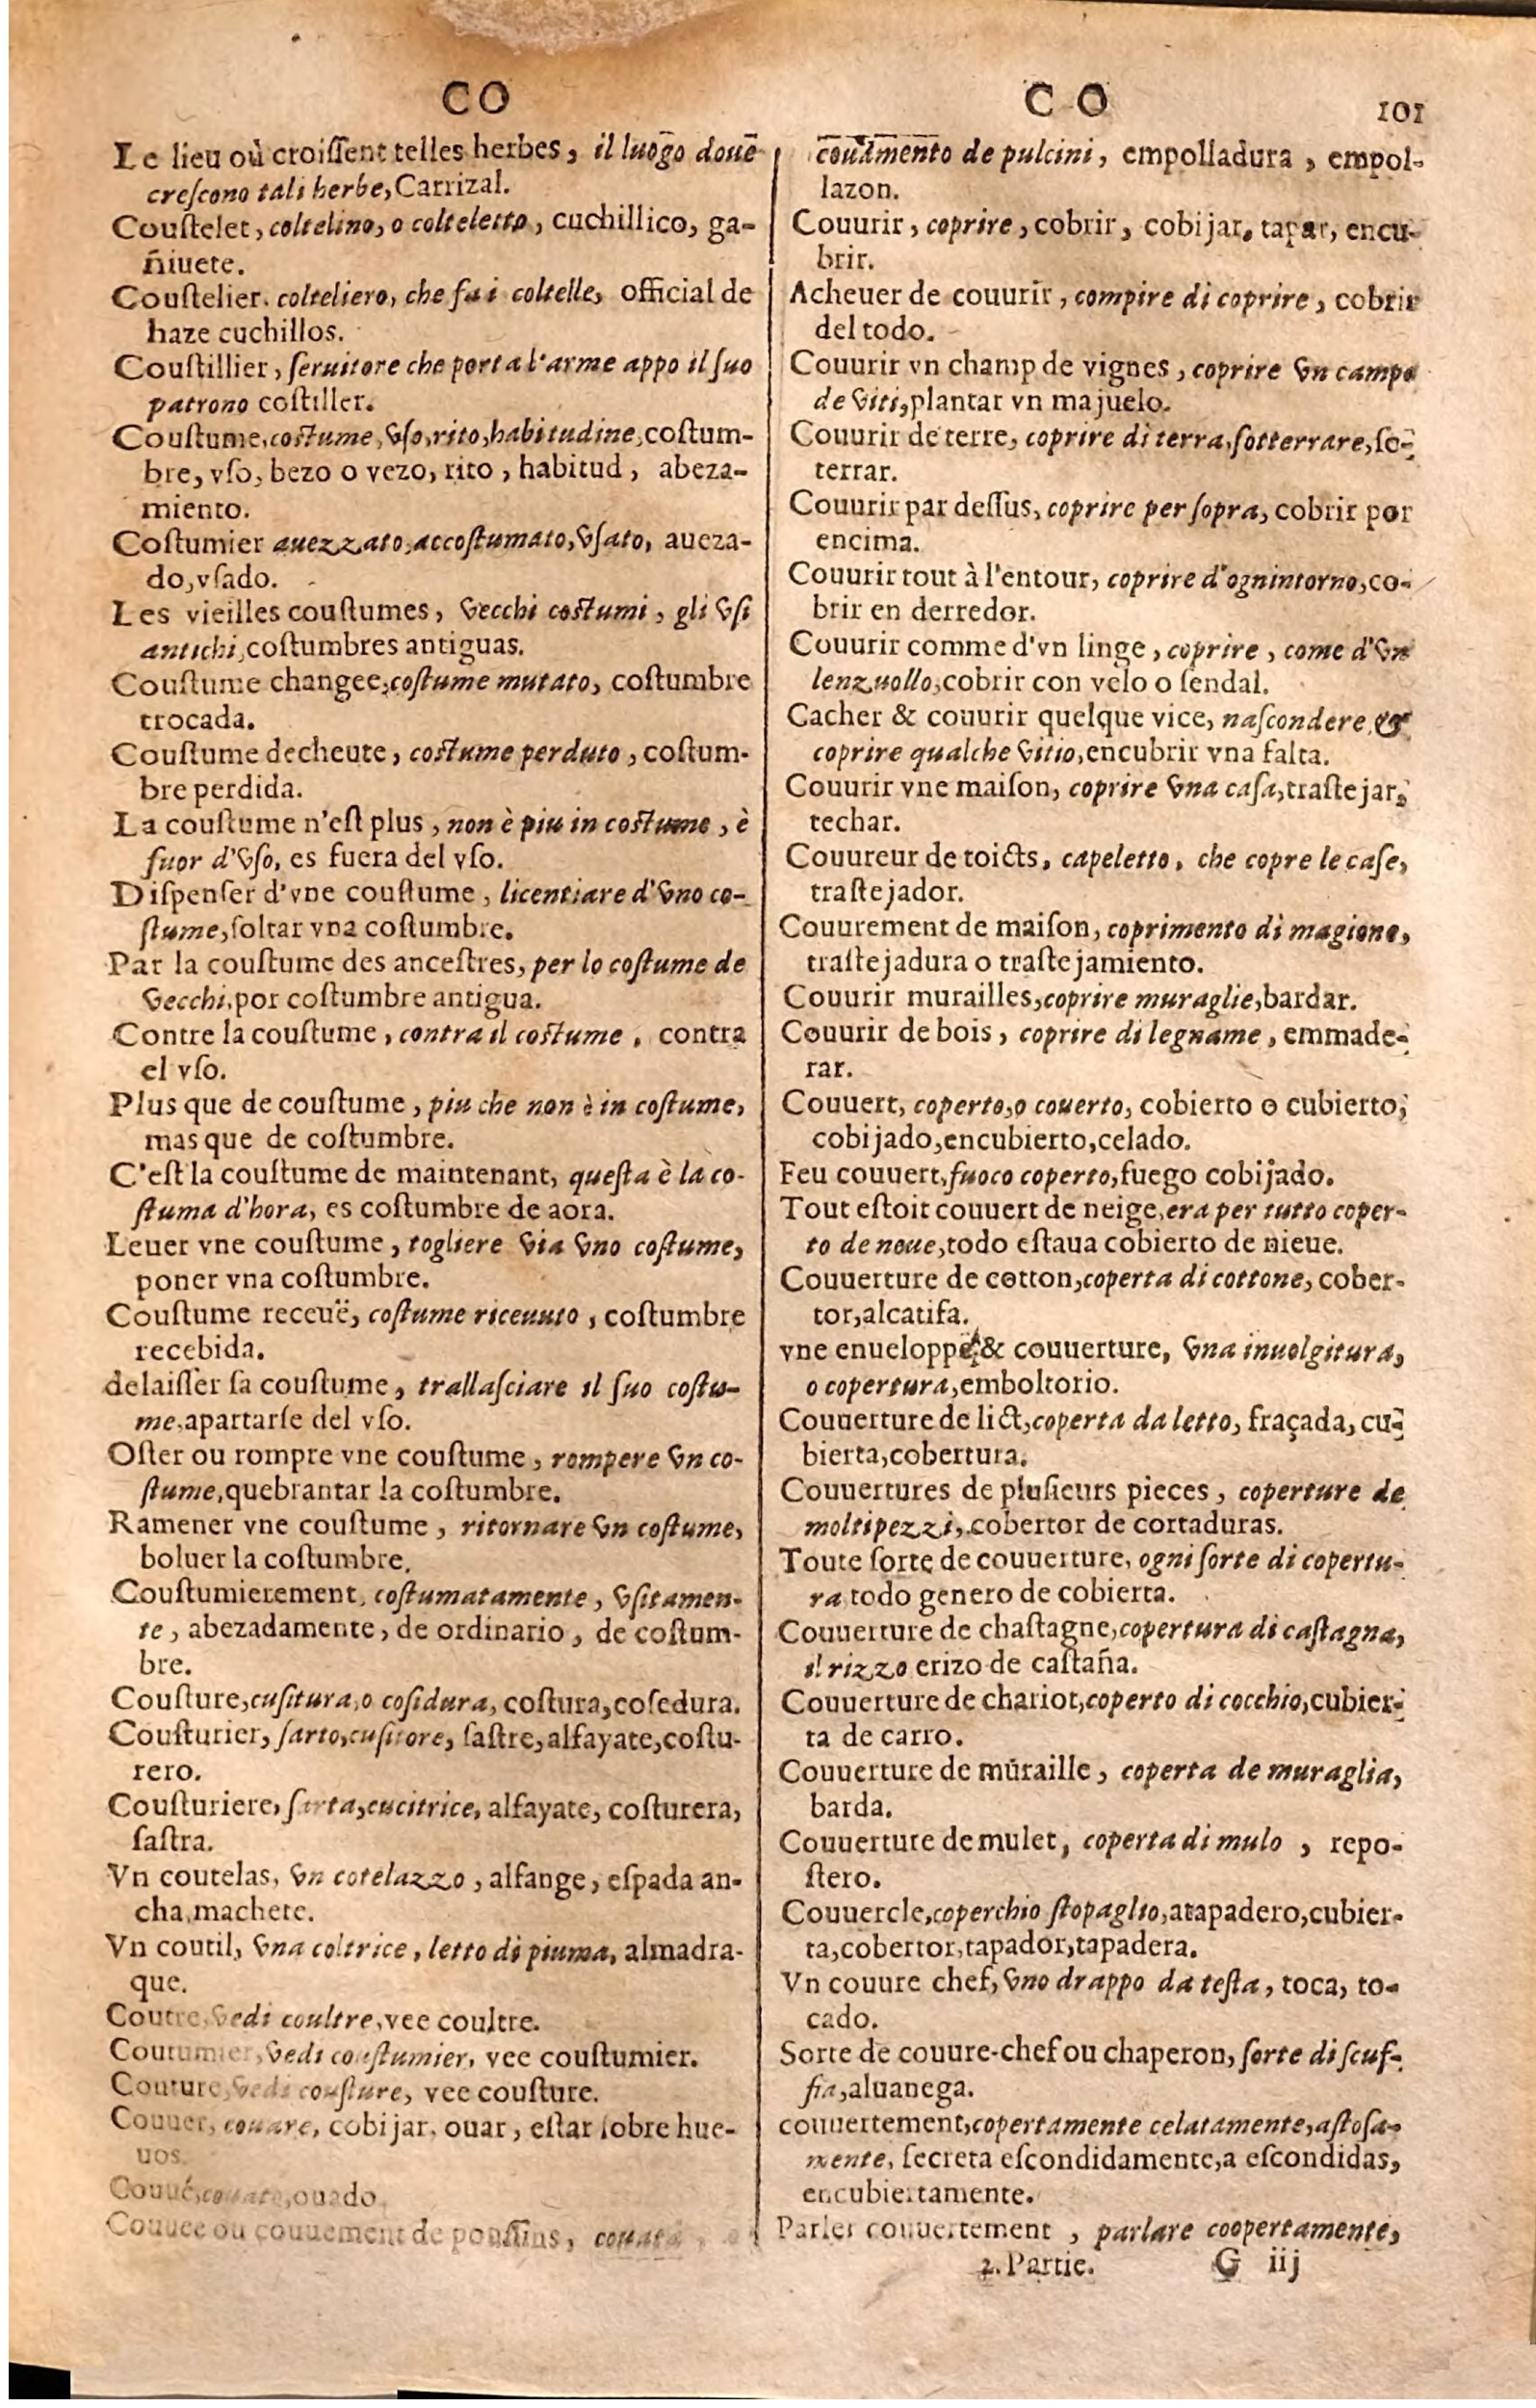 CO
Le lieu où croiſſent telles herbes, il luogo doue
creſcono tali herbe, Carrizal.
Couſtelet, coltelino, o colteletto, cuchillico, ga-
ñiuete.
Couſtelier. colteliero, che fa i coltelle, official de
haze cuchillos.
Couſtillier, ſeruitore che porta l'arme appo il ſuo
patrono coſtiller.
Couſtume, coſtume, vſo, rito, habitudine, coſtum-
bre, vſo, bezo o vezo, rito, habitud, abeza-
miento.
Coſtumier auezzato, accoſtumato, vſato, aueza-
do, vſado.
Les vieilles couſtumes, vecchi coſtumi, gli vſi
antichi, coſtumbres antiguas.
Couſtume changee, coſtume mutato, coſtumbre
trocada.
Couſtume decheute, coſtume perduto, coſtum-
bre perdida.
La couſtume n'eſt plus, non è piu in coſtume, è
fuor d'vſo, es fuera del vſo.
Diſpenſer d'vne couſtume, licentiare d'vno co-
ſtume, ſoltar vna coſtumbre.
Par la couſtume des anceſtres, per lo coſtume de
vecchi, por coſtumbre antigua.
Contre la couſtume, contra il coſtume, contra
el vſo.
Plus que de couſtume, piu che non è in coſtume,
mas que de coſtumbre.
C'eſt la couſtume de maintenant, queſta è la co-
ſtuma d'hora, es coſtumbre de aora.
Leuer vne couſtume, togliere via vno coſtume,
poner vna coſtumbre.
Couſtume receuë, coſtume riceuuto, coſtumbre
recebida.
delaiſſer ſa couſtume, trallaſciare il ſuo coſtu-
me, apartarſe del vſo.
Oſter ou rompre vne couſtume, rompere vn co-
ſtume, quebrantar la coſtumbre.
Ramener vne couſtume, ritornare vn coſtume,
boluer la coſtumbre.
Couſtumierement, coſtumatamente, vſitamen-
te, abezadamente, de ordinario, de coſtum-
bre.
Couſture, cuſitura, o coſidura, coſtura, coſedura.
Couſturier, ſarto, cuſitore, ſaſtre, alfayate, coſtu-
rero.
Couſturiere, ſarta, cucitrice, alfayate, coſturera,
ſaſtra.
Vn coutelas, vn cotelazzo, alfange, eſpada an-
cha, machete.
Vn coutil, vna coltrice, letto di piuma, almadra-
que.
Coutre, vedi coultre, vee coultre.
Coutumier, vedi couſtumier, vee couſtumier.
Couture, vedi couſture, vee couſture.
Couuer, couare, cobijar. ouar, eſtar ſobre hue-
uos.
Couué, couato, ouado.
Couuee ou couuement de pouſſins, couata,
CO 101
couamento de pulcini, empolladura, empol-
lazon.
Couurir, coprire, cobrir, cobijar, tapar, encu-
brir.
Acheuer de couurir, compire di coprire, cobrir
del todo.
Couurir vn champ de vignes, coprire vn campo
de viti, plantar vn majuelo.
Couurir de terre, coprire di terra, ſotterrare, ſo-
terrar.
Couurir par deſſus, coprire per ſopra, cobrir por
encima.
Couurir tout à l'entour, coprire d'ognintorno, co-
brir en derredor.
Couurir comme d'vn linge, coprire, come d'vn
lenzuollo, cobrir con velo o ſendal.
Cacher & couurir quelque vice, naſcondere, &
coprire qualche vitio, encubrir vna falta.
Couurir vne maiſon, coprire vna caſa, traſtejar,
techar.
Couureur de toicts, capeletto, che copre le caſe,
traſtejador.
Couurement de maiſon, coprimento di magione,
traſtejadura o traſtejamiento.
Couurir murailles, coprire muraglie, bardar.
Couurir de bois, coprire di legname, emmade-
rar.
Couuert, coperto, o couerto, cobierto o cubierto,
cobijado, encubierto, celado.
Feu couuert, fuoco coperto, fuego cobijado.
Tout eſtoit couuert de neige, era per tutto coper-
to de neue, todo eſtaua cobierto de nieue.
Couuerture de cotton, coperta di cottone, cober-
tor, alcatifa.
vne enueloppe & couuerture, vna inuolgitura,
o copertura, emboltorio.
Couuerture de lict, coperta da letto, fraçada, cu-
bierta, cobertura.
Couuertures de pluſieurs pieces, coperture de
moltipezzi, cobertor de cortaduras.
Toute ſorte de couuerture, ogni ſorte di copertu-
ra todo genero de cobierta.
Couuerture de chaſtagne, copertura di caſtagna,
il rizzo erizo de caſtaña.
Couuerture de chariot, coperto di cocchio, cubier-
ta de carro.
Couuerture de muraille, coperta de muraglia,
barda.
Couuerture de mulet, coperta di mulo, repo-
ſtero.
Couuercle, coperchio ſtopaglio, atapadero, cubier-
ta, cobertor, tapador, tapadera.
Vn couure chef, vno drappo da teſta, toca, to-
cado.
Sorte de couure-chef ou chaperon, ſorte di ſcuf-
fia, aluanega.
couuertement, copertamente celatamente, aſtoſa-
mente, ſecreta eſcondidamente, a eſcondidas,
encubiertamente.
Parler couuertement, parlare coopertamente,
2. Partie. G iij